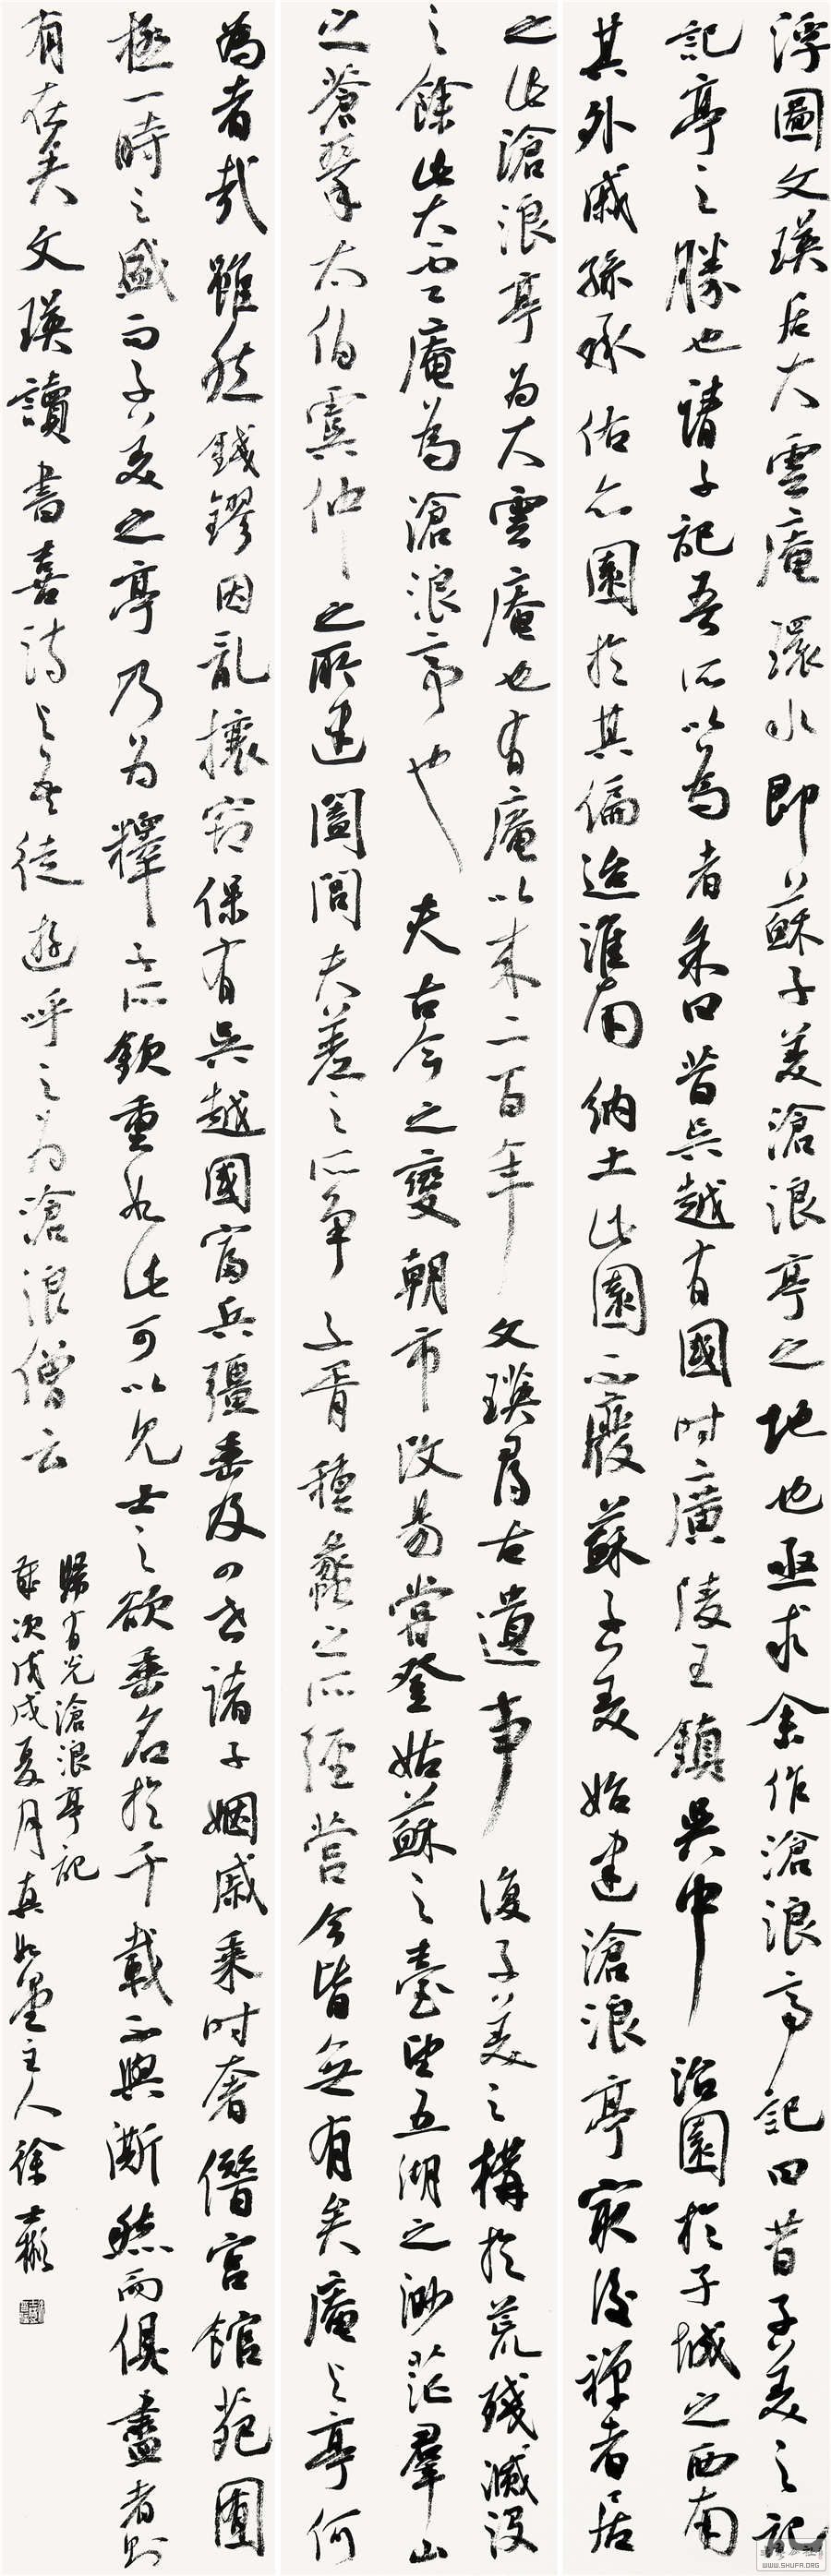 浮圖文瑛居大雲庵環水即蘇子美滄浪亭之地也亟求余作滄浪亭記曰昔子美之記
記亭之勝也請子記吾所以為者余曰昔吳越有國時廣陵王鎮吳中治園於子城之西南
其外戚孫承佑亦園於其偏迨淮南納土此園不廢蘇子美始建滄浪亭最後禪者居
之此滄浪亭為大雲庵也有庵以來二百年文瑛尋古遺事復子美之構於荒殘滅沒
之餘此大雲庵為滄浪亭也夫古今之變朝市改易嘗登姑蘇之臺望五湖之渺茫羣山
之蒼翠太伯虞仲之所建闔閭夫差之所爭子胥種蠡之所經營今皆無有矣庵與亭何
為者哉雖然錢鏐因亂攘竊保有吳越國富兵彊垂及四世諸子姻戚乘時奢僭宮館苑囿
極一時之盛而子美之亭乃為釋子所欽重如此可以見士之欲垂名於千載不與澌然而俱盡者則
有在矣文瑛讀書喜詩與吾徒遊呼之為滄浪僧云
歸有光滄浪亭記
歲次戊戌夏月真如墨主人徐
WWW.SHUFA.ORG